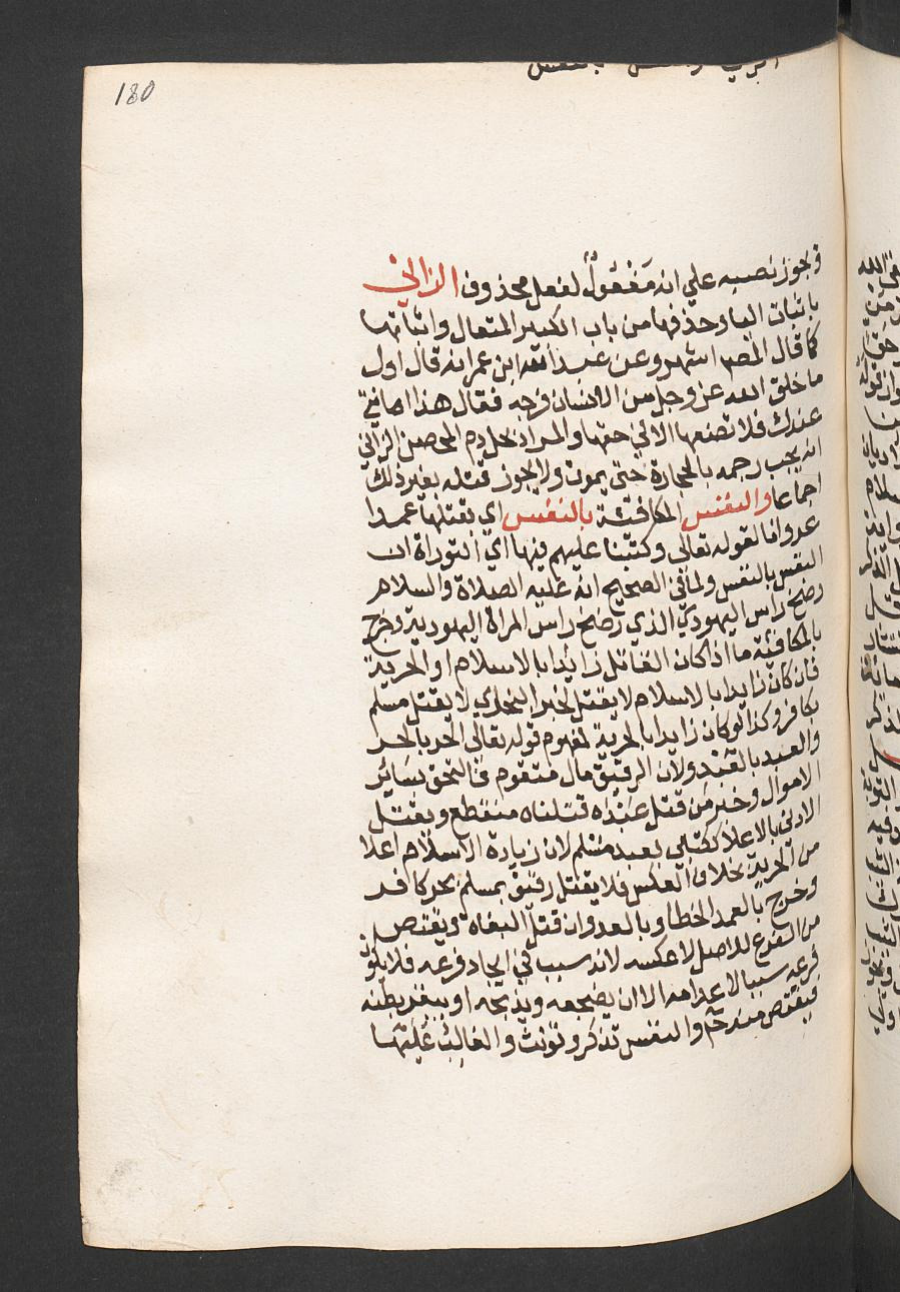 180
ويجوز نصبه علي انه مَفْعُولٌ لفعل محذوف الزاني
باثبات اليا وحذفها من باب الكبير المتعال واثباتها
كما قال المص اشهر وعن عبد الله ابن عمر انه قال اول
ما خلق الله عز وجل من الانسان فرجه فقال هذا امانتي
عندك فلا تضعها الا في حقها والمراد بحل دم المحصن الزاني
انه يجب رجمه بالحجارة حتي يموت ولا يجوز قتله بغير ذلك
اجماعا والنفس المكافئة بالنفس اي بقتلها عمدا
عدوانا لقوله تعالي وكتبنا عليهم فيها اي التوراة ان
النفس بالنفس ولما في الصحيح انه عليه الصلاة والسلام
رضخ راس اليهودي الذي رضخ راس المراة اليهودية وخرج
بالمكافئة ما اذا كان القاتل زايدا بالاسلام او الحرية
فان كان زايدا بالاسلام لا يقتل لخبر البخاري لا يقتل مسلم
بكافر وكذا لو كان زايدا بالحرية لمفهوم قوله تعالي الحر بالحر
والعبد بالعبد ولان الرقيق مال متقوم في التحق بسائر
الاموال وخبر من قتل عبده قتلناه منقطع ويقتل
الادني بالاعلا ككتابي بعبد مسلم لان زيادة الاسلام اعلا
من الحرية بخلاف العكس فلا يقتل رقيق بمسلم بحر كافر
وخرج بالعمد الخطا وبالعدوان قتل البغاة ويقتص
من الفرع للاصل لا عكسه لانه سبب في ايجاد فرعه فلا يكون
فرعه سببا لاعدامه الا ان يضجعه ويذبحه او يبقر بطنه
فيقتص منه ثم والنفس تذكر وتونث والغالب عليها